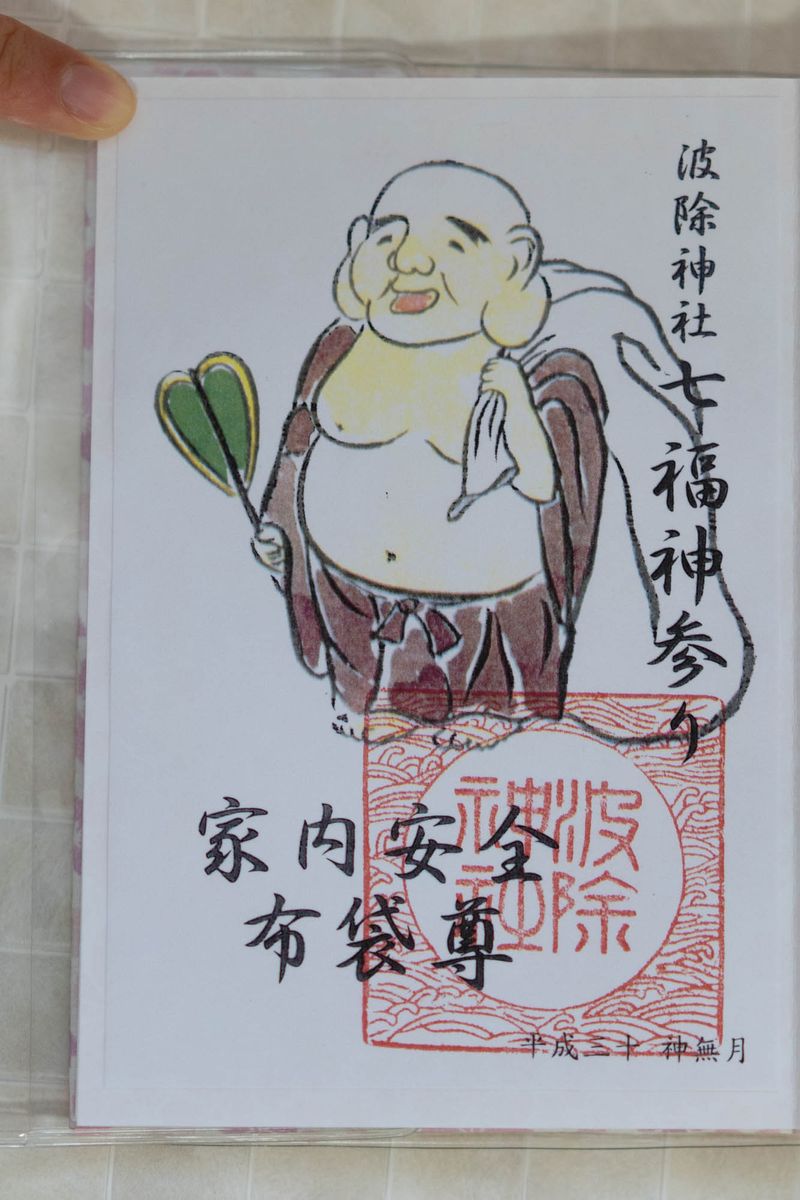 波除神社 七福神参り
家内安全
布袋尊
波除
神社
平成三十 神無月